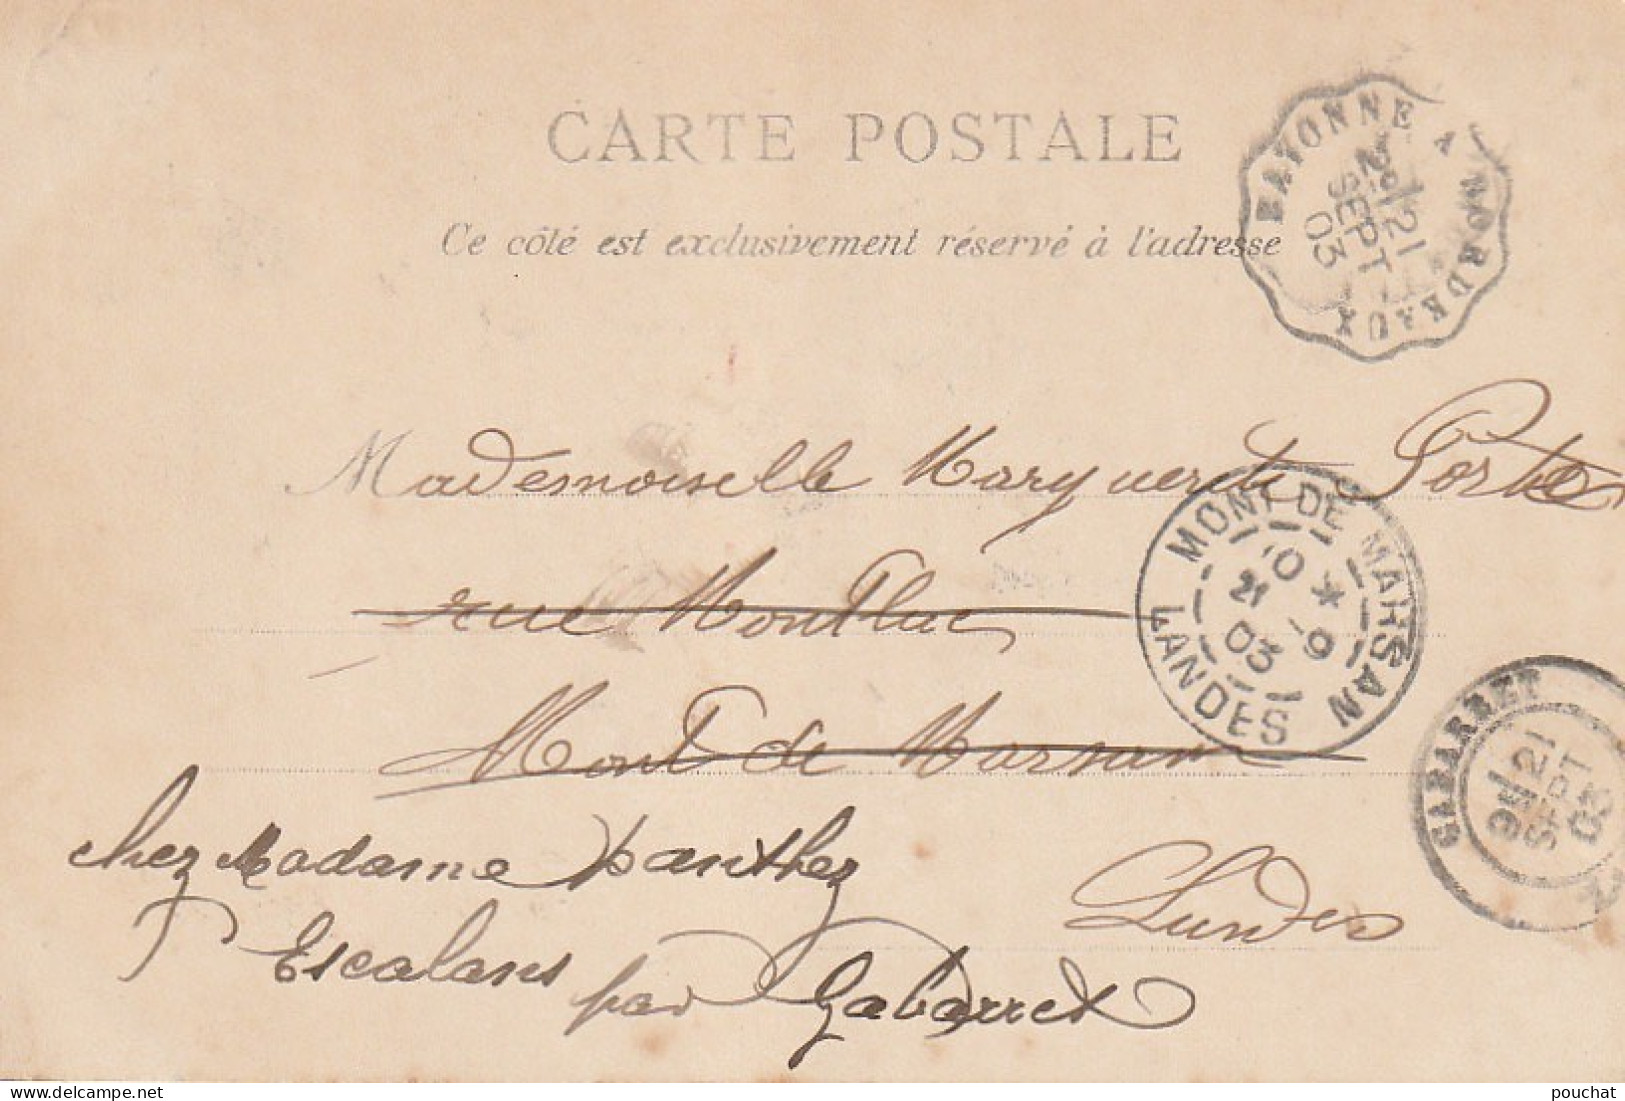 CARTE POSTALE
Ce côté est exclusivement réservé à l'adresse
BAYONNE A BORDEAUX
21
SEPT
03
Mademoiselle Marguerite Porte
rue Montluc
Mont de Marsan
Landes
MONT-DE-MARSAN
LANDES
10 *
21 -9
03
chez Madame
Escalans par Gabarret
GABARRET
9E 21
SEPT
03
www.delcampe.net
pouchat